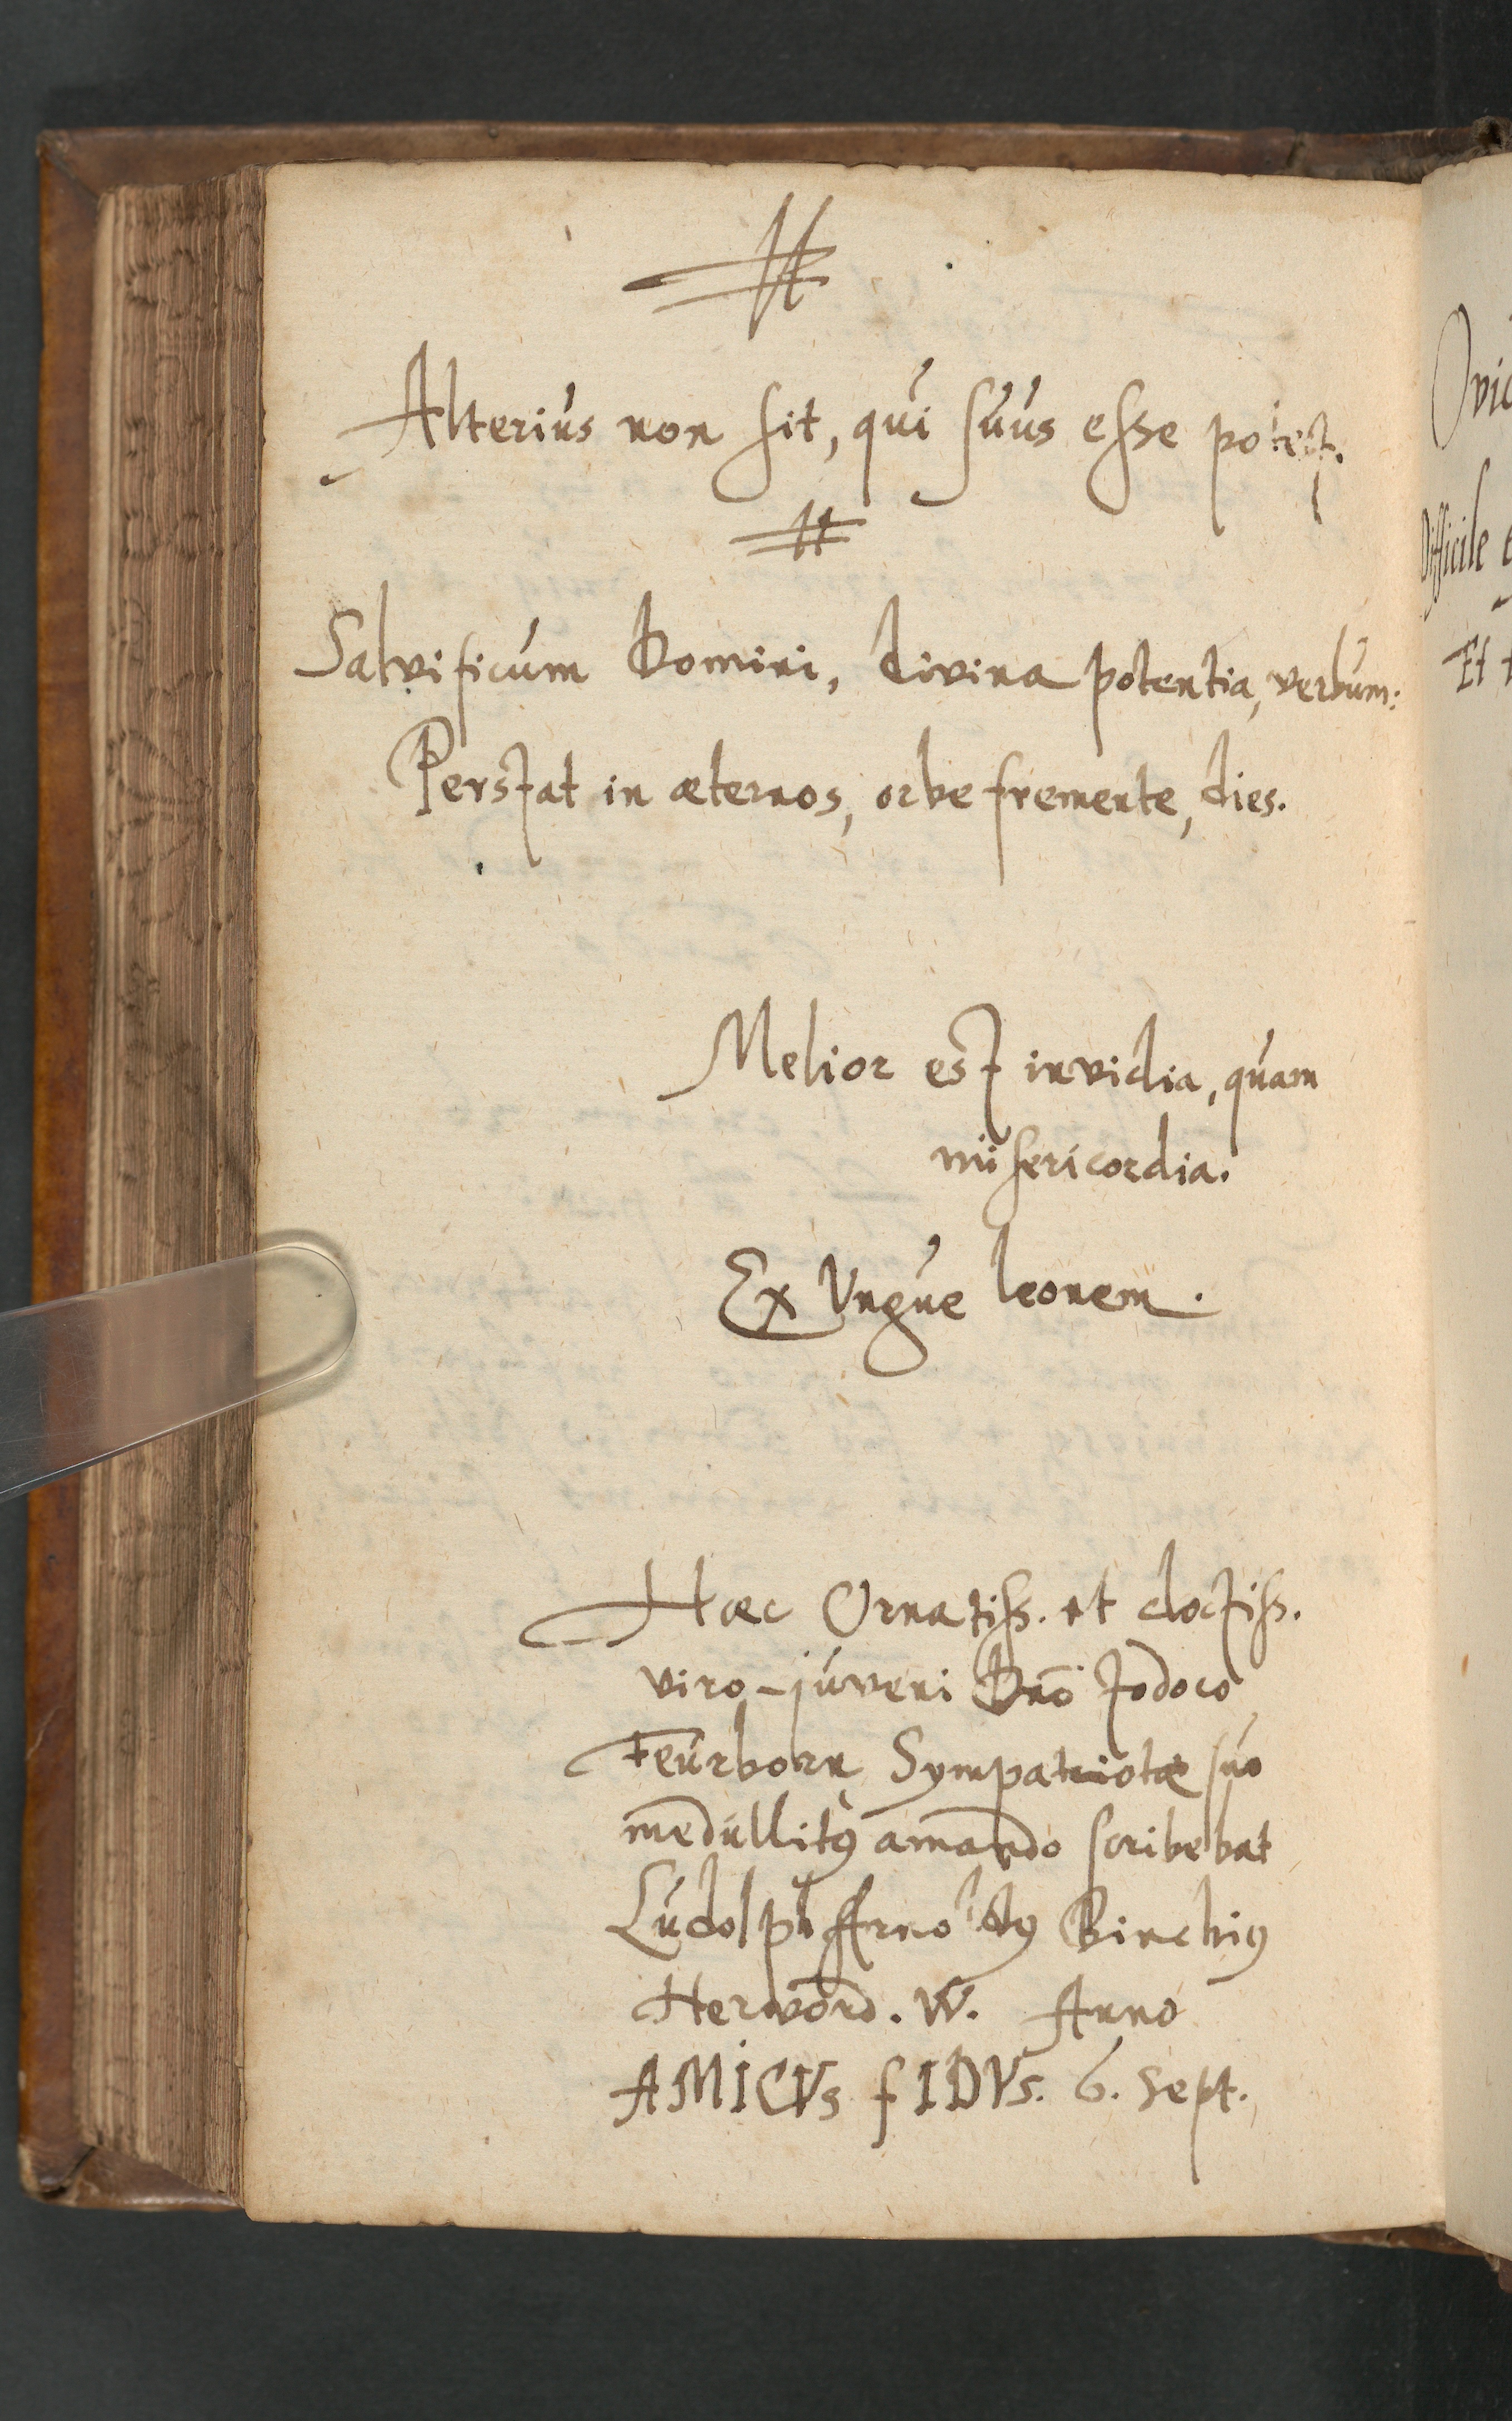 Alterius non sit, qui suus esse potest.
Salvificum Domini, divina potentia, verbum:
Perstat in æternos, orbe fremente, dies.
Melior est invidia, quam
misericordia.
Ex Ungue leonem.
Hæc Ornatiss. et doctiss.
viro-juveni Dnō Jodoco
Feurborn Sympatriotæ suo
medullitꝰ amando scribebat
Ludolph Arnoldꝰ Binchiꝰ
Herword. W. Anno
AMICVs fIDVs. 6. Sept.
Ovid
Difficile e
Et t